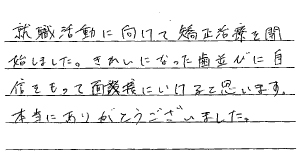 就職活動に向けて矯正治療を開
始しました。きれいになった歯並びに自
信をもって面接にいけると思います。
本当にありがとうございました。